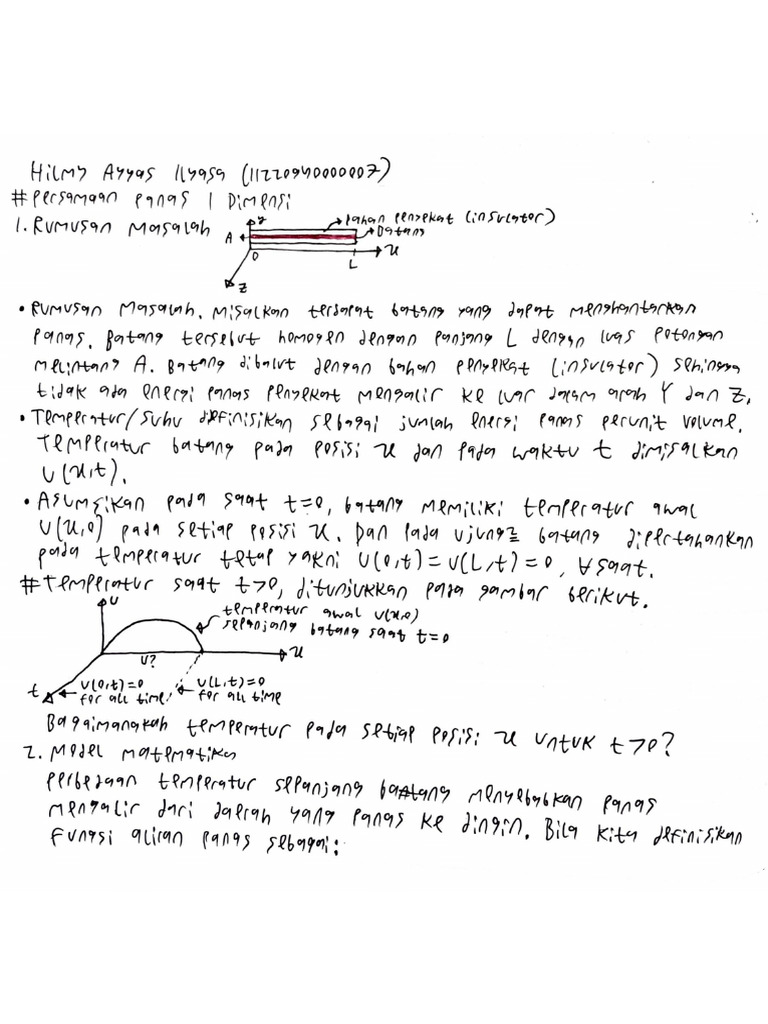 Hilmy Ayyas Ilyasa (11220940000007)
# Persamaan Panas 1 Dimensi
1. Rumusan Masalah
y
bahan penyekat (insulator)
A
Batang
x
0
L
z
• Rumusan Masalah. Misalkan terdapat batang yang dapat menghantarkan
panas. Batang tersebut homogen dengan panjang L dengan luas potongan
melintang A. Batang dibalut dengan bahan penyekat (insulator) sehingga
tidak ada energi panas penyekat mengalir ke luar dalam arah Y dan Z.
• Temperatur/suhu definisikan sebagai jumlah energi panas perunit volume.
Temperatur batang pada posisi x dan pada waktu t dimisalkan
U(x,t).
• Asumsikan pada saat t=0, batang memiliki temperatur awal
U(x,0) pada setiap posisi x. Dan pada ujung2 batang dipertahankan
pada temperatur tetap yakni U(0,t)=U(L,t)=0, ∀saat.
# Temperatur saat t>0, ditunjukkan pada gambar berikut.
U
temperatur awal U(x,0)
sepanjang batang saat t=0
U?
x
t
U(0,t)=0
for all time
U(L,t)=0
for all time
Bagaimanakah temperatur pada setiap posisi x untuk t>0?
2. Model matematika
Perbedaan temperatur sepanjang batang menyebabkan panas
mengalir dari daerah yang panas ke dingin. Bila kita definisikan
fungsi aliran panas sebagai: